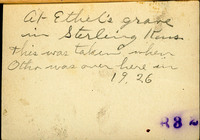 At Ethel's grave
in Sterling Kans
This was taken when
Otha was over here in
19,26
R32